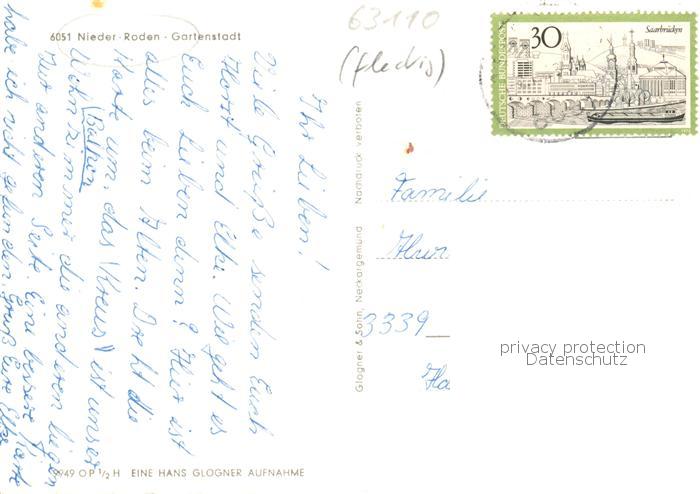 6051 Nieder-Roden-Gartenstadt
63110
(fleckig)
Saarbrücken
30
DEUTSCHE BUNDESPOST
Ihr Lieben!
Viele Grüße senden Euch
Horst und Elke. Wie geht es
Euch Lieben denn? Hier ist
alles beim Alten. Dreht die
Karte um, das "Kreus" ist unser
(Balkon)
Wohnzimmer die anderen liegen
zur anderen Seite. Eine bessere Karte
habe ich nicht gefunden. Gruß Eure Elke
Glogner & Sohn, Neckargemünd Nachdruck verboten
Familie
3339
Ha
privacy protection
Datenschutz
9949 O P ½ H EINE HANS GLOGNER AUFNAHME